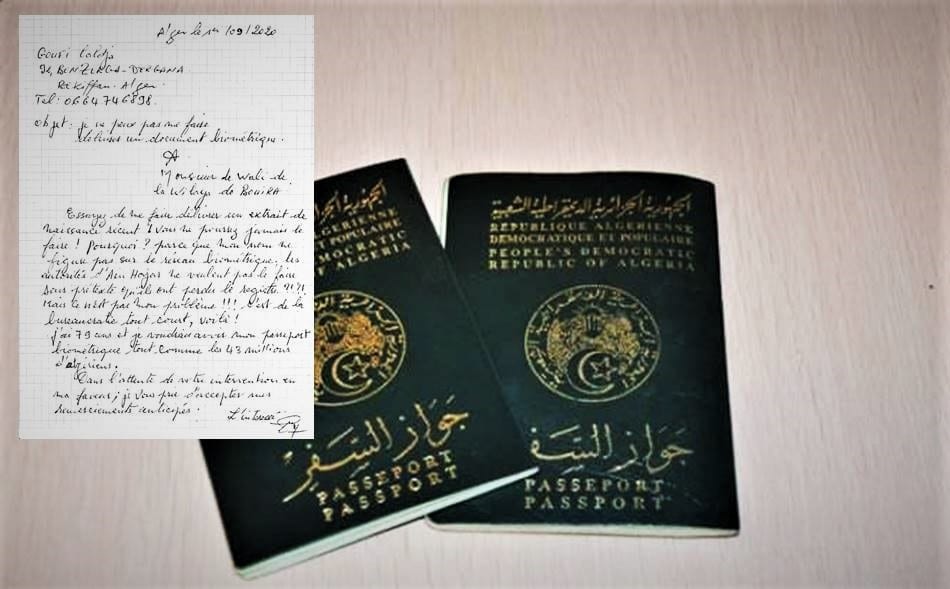 Alger le 1er /09/2020
Gouri Caldja
94, BENZERGA - DERGANA
B. El Kiffan. Alger
Tel: 0664746898.
Objet: je ne peux pas me faire
délivrer un document biométrique.
A
Monsieur le Wali de
la Wilaya de BOUIRA
Essayez de me faire délivrer un extrait de
naissance récent! Vous ne pourrez jamais le
faire! Pourquoi? parce que mon nom ne
figure pas sur le réseau biométrique. Les
autorités d'Ain Hogar ne veulent pas le faire
sous prétexte qu'ils ont perdu le registre ?!?!
Mais ce n'est pas mon problème!!! C'est de la
bureaucratie tout court, voilà!
j'ai 79 ans et je voudrais avoir mon passeport
biométrique tout comme les 43 millions
d'algériens.
Dans l'attente de votre intervention en
ma faveur; je vous prie d'accepter mes
remerciements anticipés.
L'intéressé
الجمهورية الجزائرية
ALGERIENNE
ET POPULAIRE
DEMOCRATIC
OF ALGERIA
جواز السفر
PASSEPORT
PASSPORT
الجمهورية الجزائرية الديمقراطية الشعبية
REPUBLIQUE ALGERIENNE
DEMOCRATIQUE ET POPULAIRE
PEOPLE'S DEMOCRATIC
REPUBLIC OF ALGERIA
جواز السفر
PASSEPORT
PASSPORT